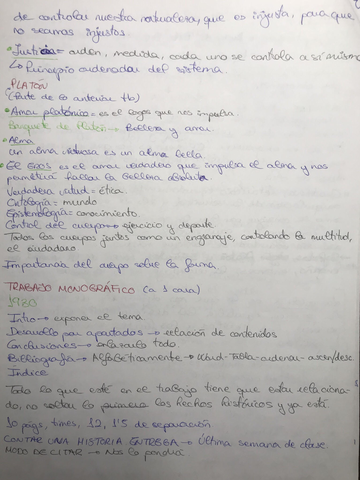 de controlar nuestra naturaleza, que es injusta, para que
no seamos injustos.
• Justicia = orden, medida, cada uno se controla a sí mismo
↳ Principio ordenador del sistema.
PLATÓN
(Parte de lo anterior tb)
• Amor platónico = es el logos que nos impulsa.
Banquete de Platón → Belleza y amor.
• Alma
Un alma virtuosa es un alma bella
• El EROS es el amor verdadero que impulsa el alma y nos
permitirá hallar la belleza absoluta
Verdadera virtud = ética.
Ontología = mundo
Epistemología = conocimiento.
Control del cuerpo → ejercicio y deporte.
Todos los cuerpos juntos como un engranaje, controlando la multitud,
el ciudadano.
Importancia del cuerpo sobre la forma.
TRABAJO MONOGRÁFICO (a 1 cara)
1980
Intro → exponer el tema
Desarrollo por apartados → relación de contenidos
Conclusiones → enlazarlo todo.
Bibliografía → Alfabéticamente → Word-Tabla-ordenar-ascen/desc
Índice
Todo lo que esté en el trabajo tiene que estar relaciona-
do, no soltar lo primero los hechos históricos y ya está.
10 págs, times, 12, 1'5 de separación
CONTAR UNA HISTORIA ENTREGA → Última semana de clase.
MODO DE CITAR → Nos lo pondrá.